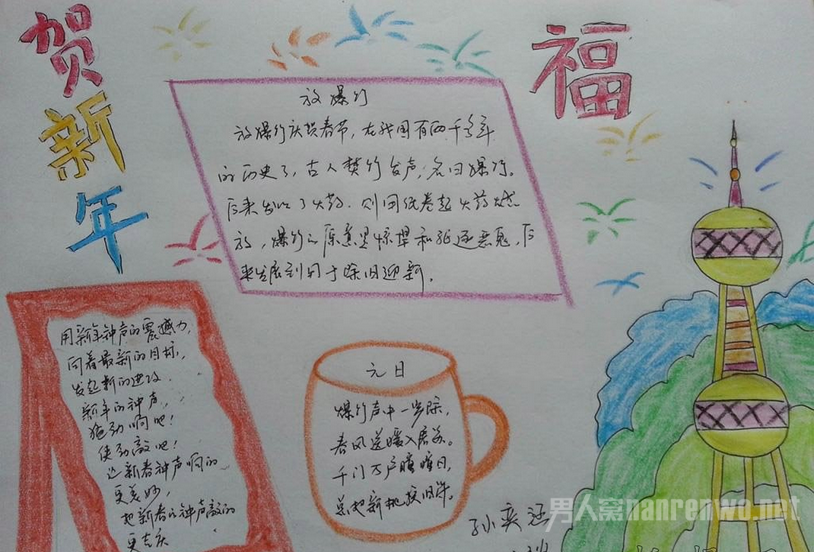 贺新年
福
放爆竹
放爆竹庆贺春节，在我国有两千多年
的历史了，古人焚竹发声，名曰爆竹。
后来了火药，则用纸卷起火药燃
放，爆竹之原意是惊惮和驱逐恶鬼，后
来发展到用于除旧迎新。
用新年钟声的震撼力，
向着最新的目标，
发起新的进攻.
新年的钟声，
劲响吧！
使劲敲吧！
让新春钟声响的
更美妙，
把新春的钟声敲的
更吉庆
元日
爆竹声中一步除，
春风送暖入屠苏。
千门万户瞳瞳日，
总把新桃换旧符。
孙奕涵
男人窝nanrenwo.net